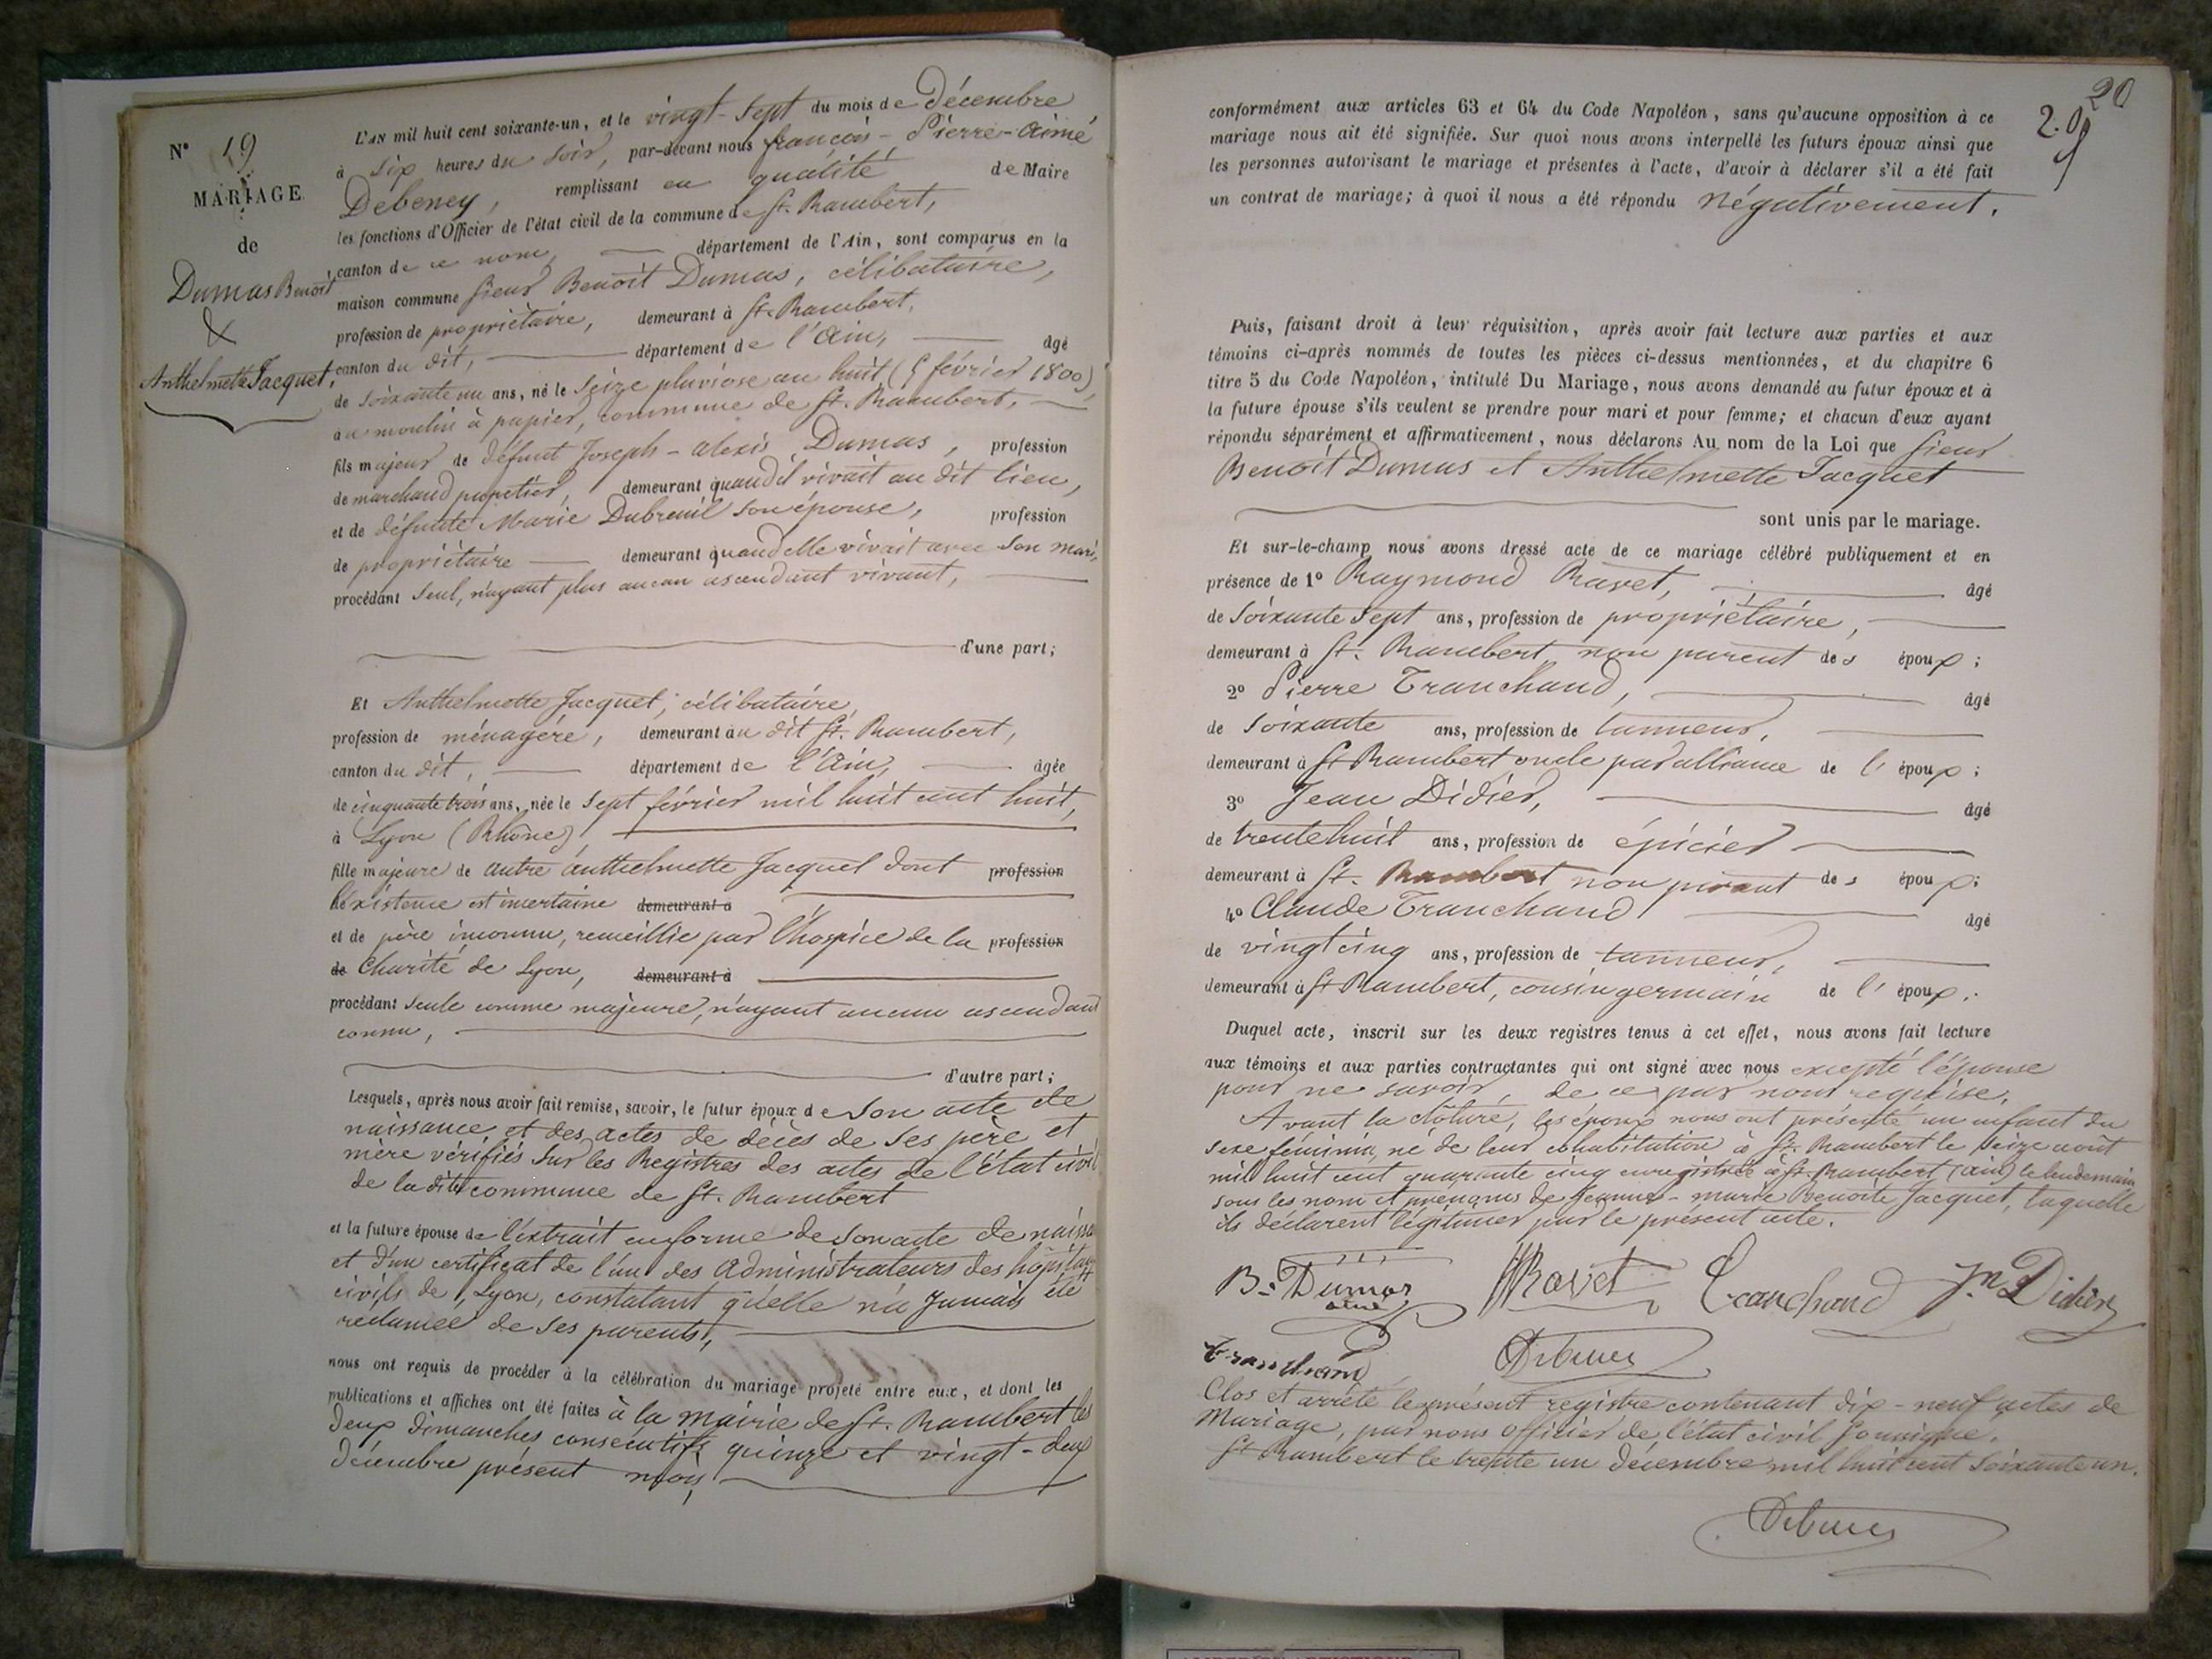 N° 19
MARIAGE
de
Dumas Benoît
&
Anthelmette Jacquet,
L'AN mil huit cent soixante-un, et le vingt-sept du mois de Décembre
à six heures du soir, par-devant nous françois-Pierre-Aimé
Debeney, remplissant en qualité de Maire
les fonctions d'Officier de l'état civil de la commune de St. Rambert,
canton de ce nom, département de l'Ain, sont comparus en la
maison commune sieur Benoît Dumas, célibataire,
profession de propriétaire, demeurant à St. Rambert,
canton du dit, département de l'Ain, âgé
de soixante un ans, né le seize pluviose an huit (5 février 1800),
au moulin à papier, commune de St. Rambert,
fils majeur de défunt Joseph-alexis Dumas, profession
de marchand papetier, demeurant quand il vivait au dit lieu,
et de défunte Marie Dubreuil son épouse, profession
de propriétaire demeurant quand elle vivait avec son mari,
procédant seul, n'ayant plus aucun ascendant vivant,
d'une part;
Et Anthelmette Jacquet, célibataire,
profession de ménagère, demeurant au dit St. Rambert,
canton du dit, département de l'Ain, âgée
de cinquante trois ans, née le sept février mil huit cent huit,
à Lyon (Rhône)
fille majeure de autre anthelmette Jacquet dont profession
l'existence est incertaine demeurant à
et de père inconnu, recueillie par l'hospice de la profession
de Charité de Lyon, demeurant à
procédant seule comme majeure, n'ayant aucun ascendant
connu,
d'autre part;
Lesquels, après nous avoir fait remise, savoir, le futur époux de son acte de
naissance et des actes de décès de ses père et
mère vérifiés sur les Registres des actes de l'état civil
de la dite commune de St. Rambert
et la future épouse de l'extrait en forme de son acte de naissa
et d'un certificat de l'un des administrateurs des hôpitaux
civils de Lyon, constatant qu'elle n'a jamais été
réclamée de ses parents,
nous ont requis de procéder à la célébration du mariage projeté entre eux, et dont les
publications et affiches ont été faites à la mairie de St. Rambert les
deux dimanches consécutifs quinze et vingt-deux
décembre présent mois
20
2.
conformément aux articles 63 et 64 du Code Napoléon, sans qu'aucune opposition à ce
mariage nous ait été signifiée. Sur quoi nous avons interpellé les futurs époux ainsi que
les personnes autorisant le mariage et présentes à l'acte, d'avoir à déclarer s'il a été fait
un contrat de mariage; à quoi il nous a été répondu Négativement.
Puis, faisant droit à leur réquisition, après avoir fait lecture aux parties et aux
témoins ci-après nommés de toutes les pièces ci-dessus mentionnées, et du chapitre 6
titre 5 du Code Napoléon, intitulé Du Mariage, nous avons demandé au futur époux et à
la future épouse s'ils veulent se prendre pour mari et pour femme; et chacun d'eux ayant
répondu séparément et affirmativement, nous déclarons Au nom de la Loi que sieur
Benoît Dumas et Anthelmette Jacquet
sont unis par le mariage.
Et sur-le-champ nous avons dressé acte de ce mariage célébré publiquement et en
présence de 1° Raymond Ravet, âgé
de soixante sept ans, profession de propriétaire,
demeurant à St. Rambert non parent des époux;
2° Pierre Tranchand, âgé
de soixante ans, profession de tanneur,
demeurant à St Rambert oncle par alliance de l'époux;
3° Jean Didier, âgé
de trente huit ans, profession de épicier
demeurant à St. Rambert non parent des époux;
4° Claude Tranchand âgé
de vingt cinq ans, profession de tanneur,
demeurant à St Rambert, cousin germain de l'époux.
Duquel acte, inscrit sur les deux registres tenus à cet effet, nous avons fait lecture
aux témoins et aux parties contractantes qui ont signé avec nous excepté l'épouse
pour ne savoir de ce par nous requise.
Avant la clôture, les époux nous ont présenté un enfant du
sexe féminin, né de leur cohabitation à St. Rambert le seize août
mil huit cent quarante cinq enregistrée à St. Rambert (ain) le lendemain
sous les nom et prénoms de Jeanne-marie Benoite Jacquet, laquelle
ils déclarent légitimer par le présent acte.
B. Dumas
aîné
Ravet
Tranchand
Jn Didier
Tranchand
Debeney
Clos et arrêté le présent registre contenant dix-neuf actes de
Mariage, par nous officier de l'état civil soussigné.
St Rambert le trente un décembre mil huit cent soixante un.
Debeney